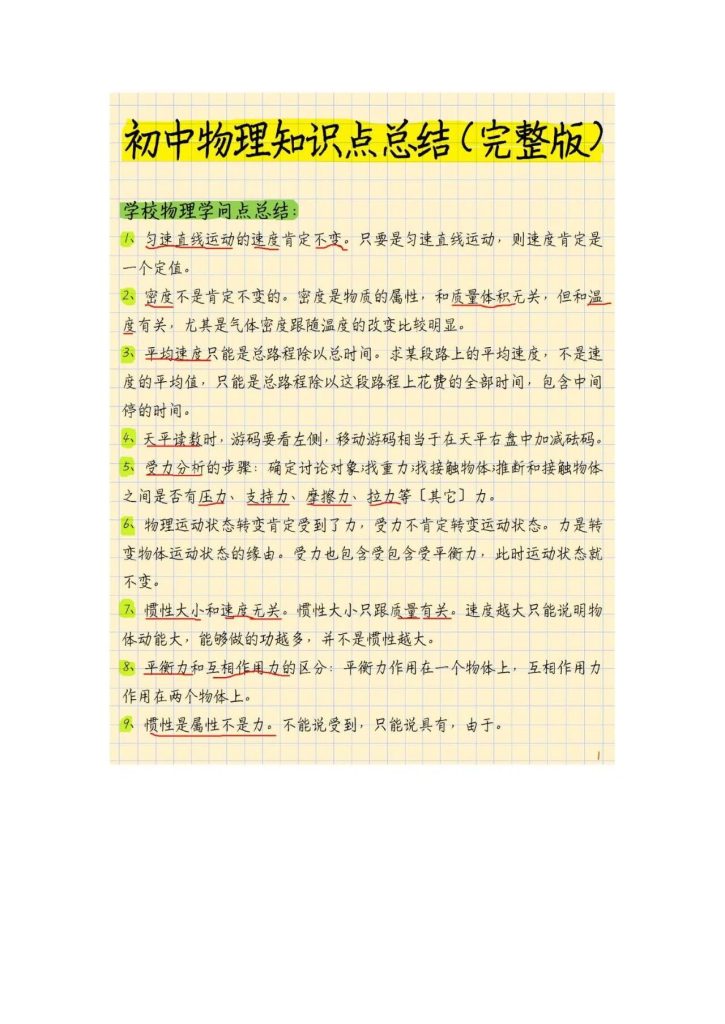 初中物理知识点总结(完整版)
学校物理学问点总结:
1、匀速直线运动的速度肯定不变。只要是匀速直线运动,则速度肯定是
一个定值。
2、密度不是肯定不变的。密度是物质的属性,和质量体积无关,但和温
度有关,尤其是气体密度跟随温度的改变比较明显。
3、平均速度只能是总路程除以总时间。求某段路上的平均速度,不是速
度的平均值,只能是总路程除以这段路程上花费的全部时间,包含中间
停的时间。
4、天平读数时,游码要看左侧,移动游码相当于在天平右盘中加减砝码。
5、受力分析的步骤:确定讨论对象;找重力;找接触物体;推断和接触物体
之间是否有压力、支持力、摩擦力、拉力等〔其它〕力。
6、物理运动状态转变肯定受到了力,受力不肯定转变运动状态。力是转
变物体运动状态的缘由。受力也包含受包含受平衡力,此时运动状态就
不变。
7、惯性大小和速度无关。惯性大小只跟质量有关。速度越大只能说明物
体动能大,能够做的功越多,并不是惯性越大。
8、平衡力和互相作用力的区分:平衡力作用在一个物体上,互相作用力
作用在两个物体上。
9、惯性是属性不是力。不能说受到,只能说具有,由于。
1